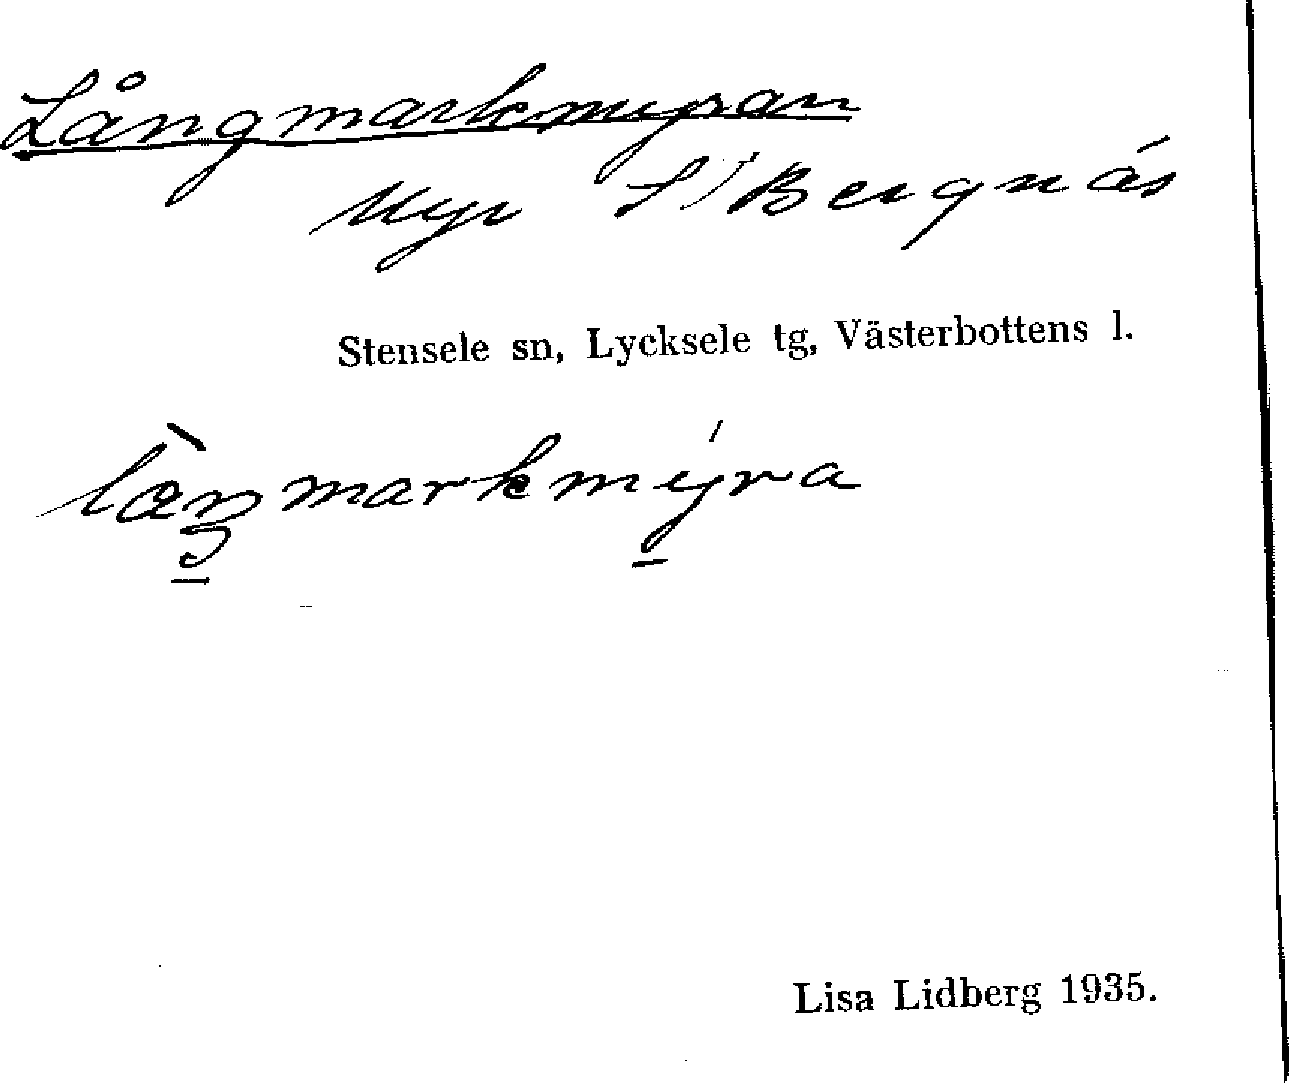 Långmarkmyran
Myr S Bergnäs
Stensele sn, Lycksele tg, Västerbottens l.
lænmarkmyra
Lisa Lidberg 1935.